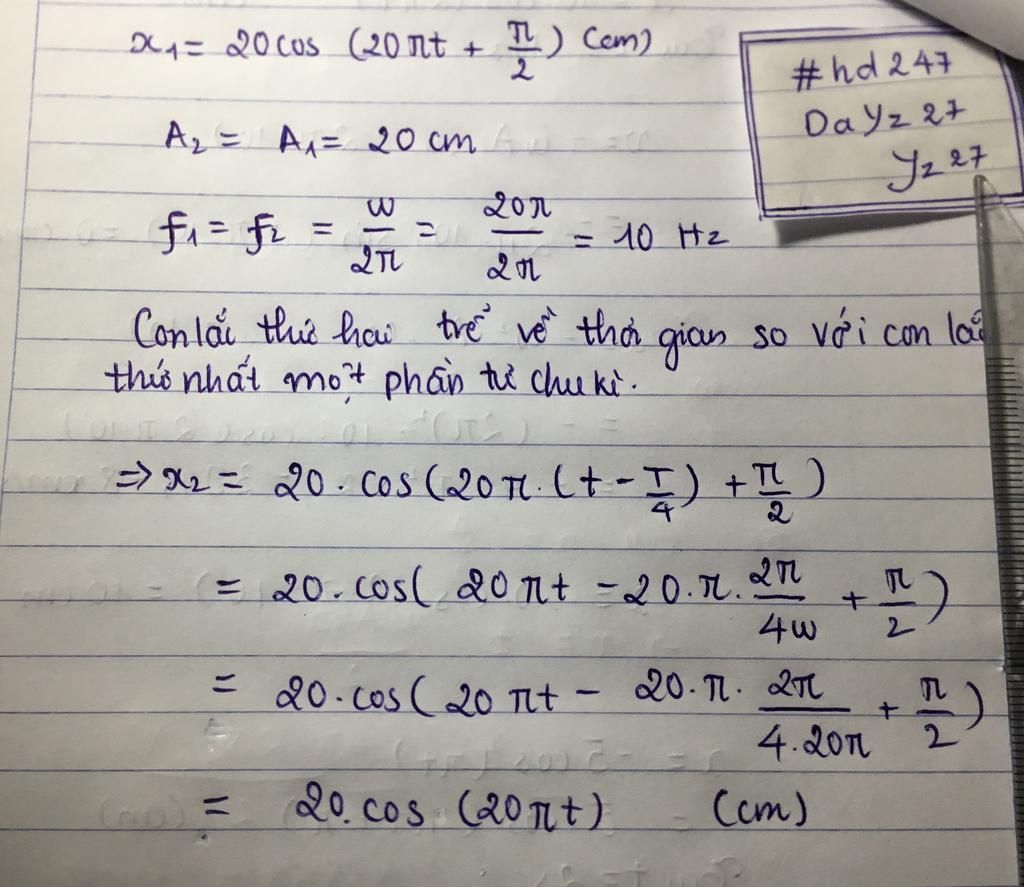 x₁ = 20cos (20πt + π/2) (cm)
#hd247
DaYz27
Yz27
A₂ = A₁ = 20 cm
f₁ = f₂ = ω/2π = 20π/2π = 10 Hz
Con lắc thứ hai trễ về thời gian so với con lắ
thứ nhất một phần tư chu kì.
⇒ x₂ = 20 . cos(20π.(t - T/4) + π/2)
= 20. cos( 20πt - 20.π. 2π/4ω + π/2)
= 20.cos( 20πt - 20.π. 2π/4.20π + π/2)
= 20.cos (20πt) (cm)